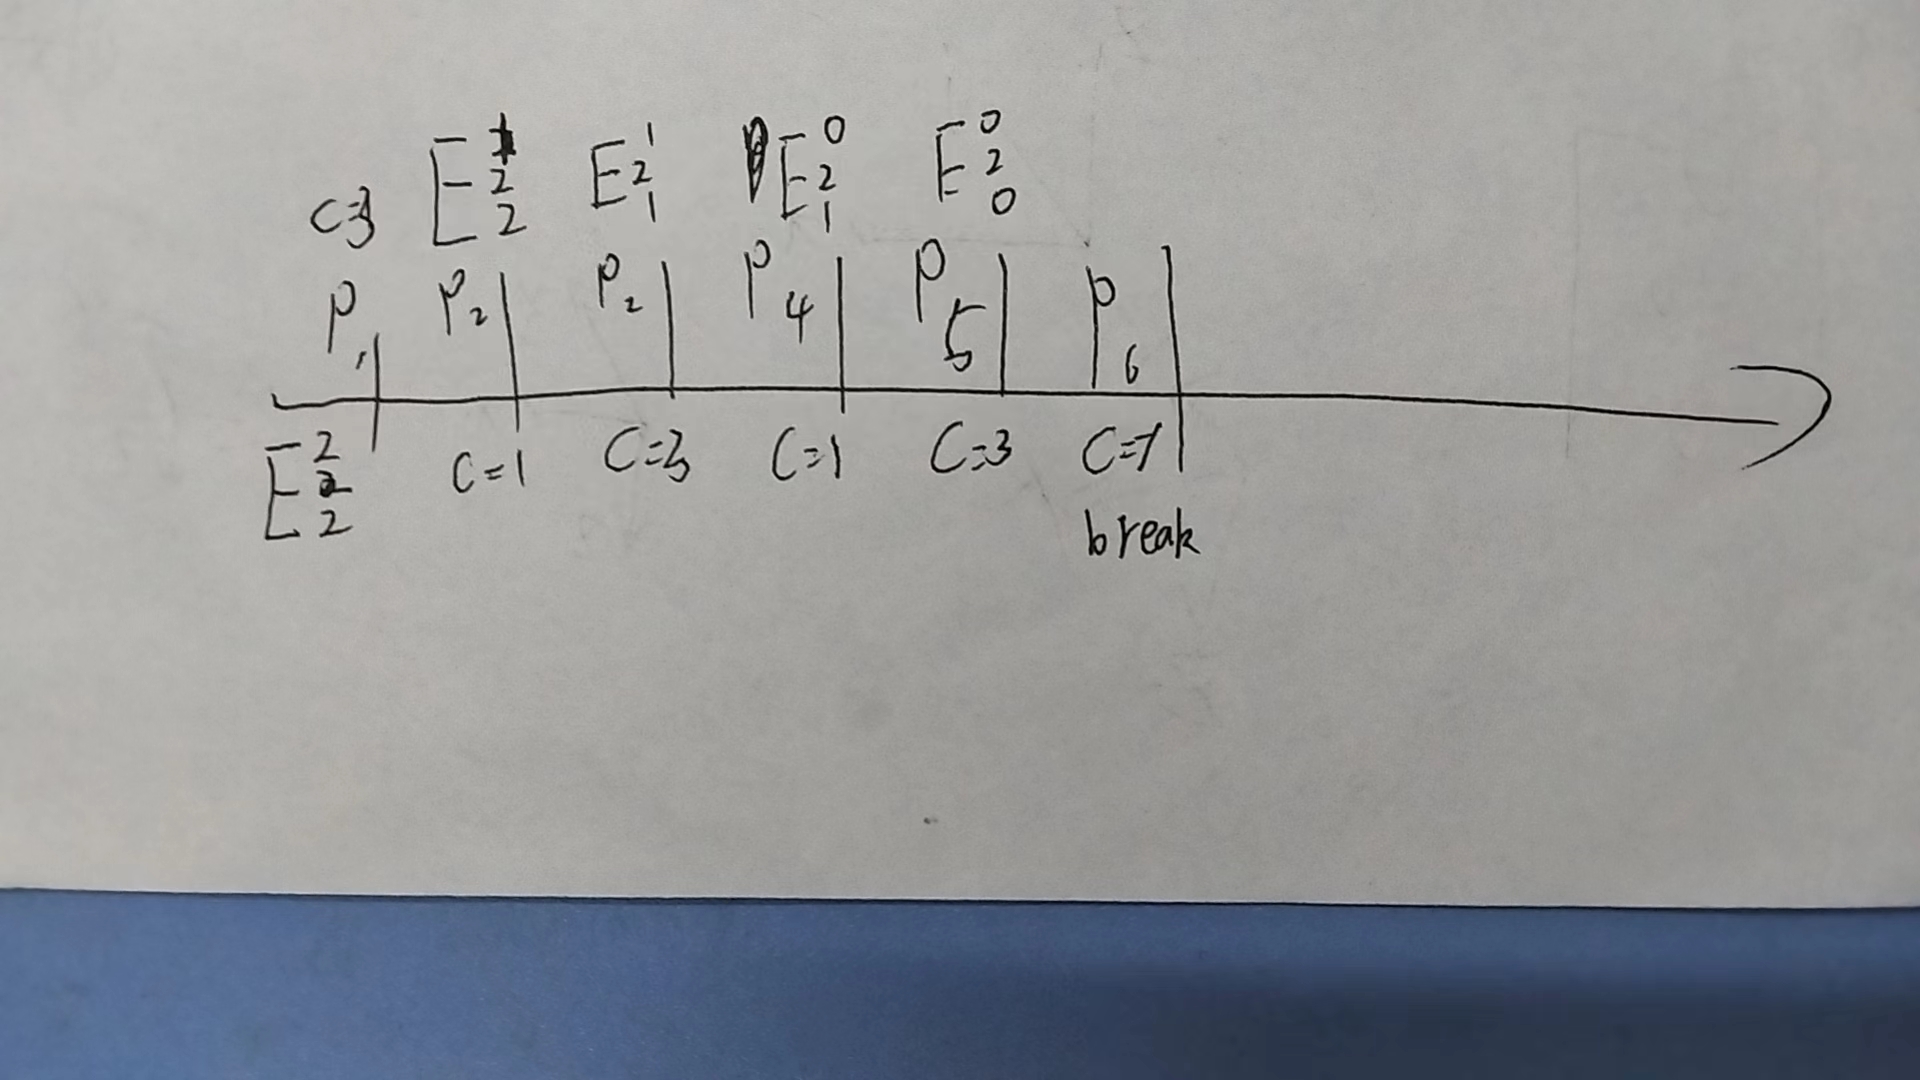 C=3 E 1 2 2 E 1 2 1 E 0 2 1 E 0 2 0
P1 P2 P2 P4 P5 P6
E 2 2 2 C=1 C=3 C=1 C=3 C=1
break